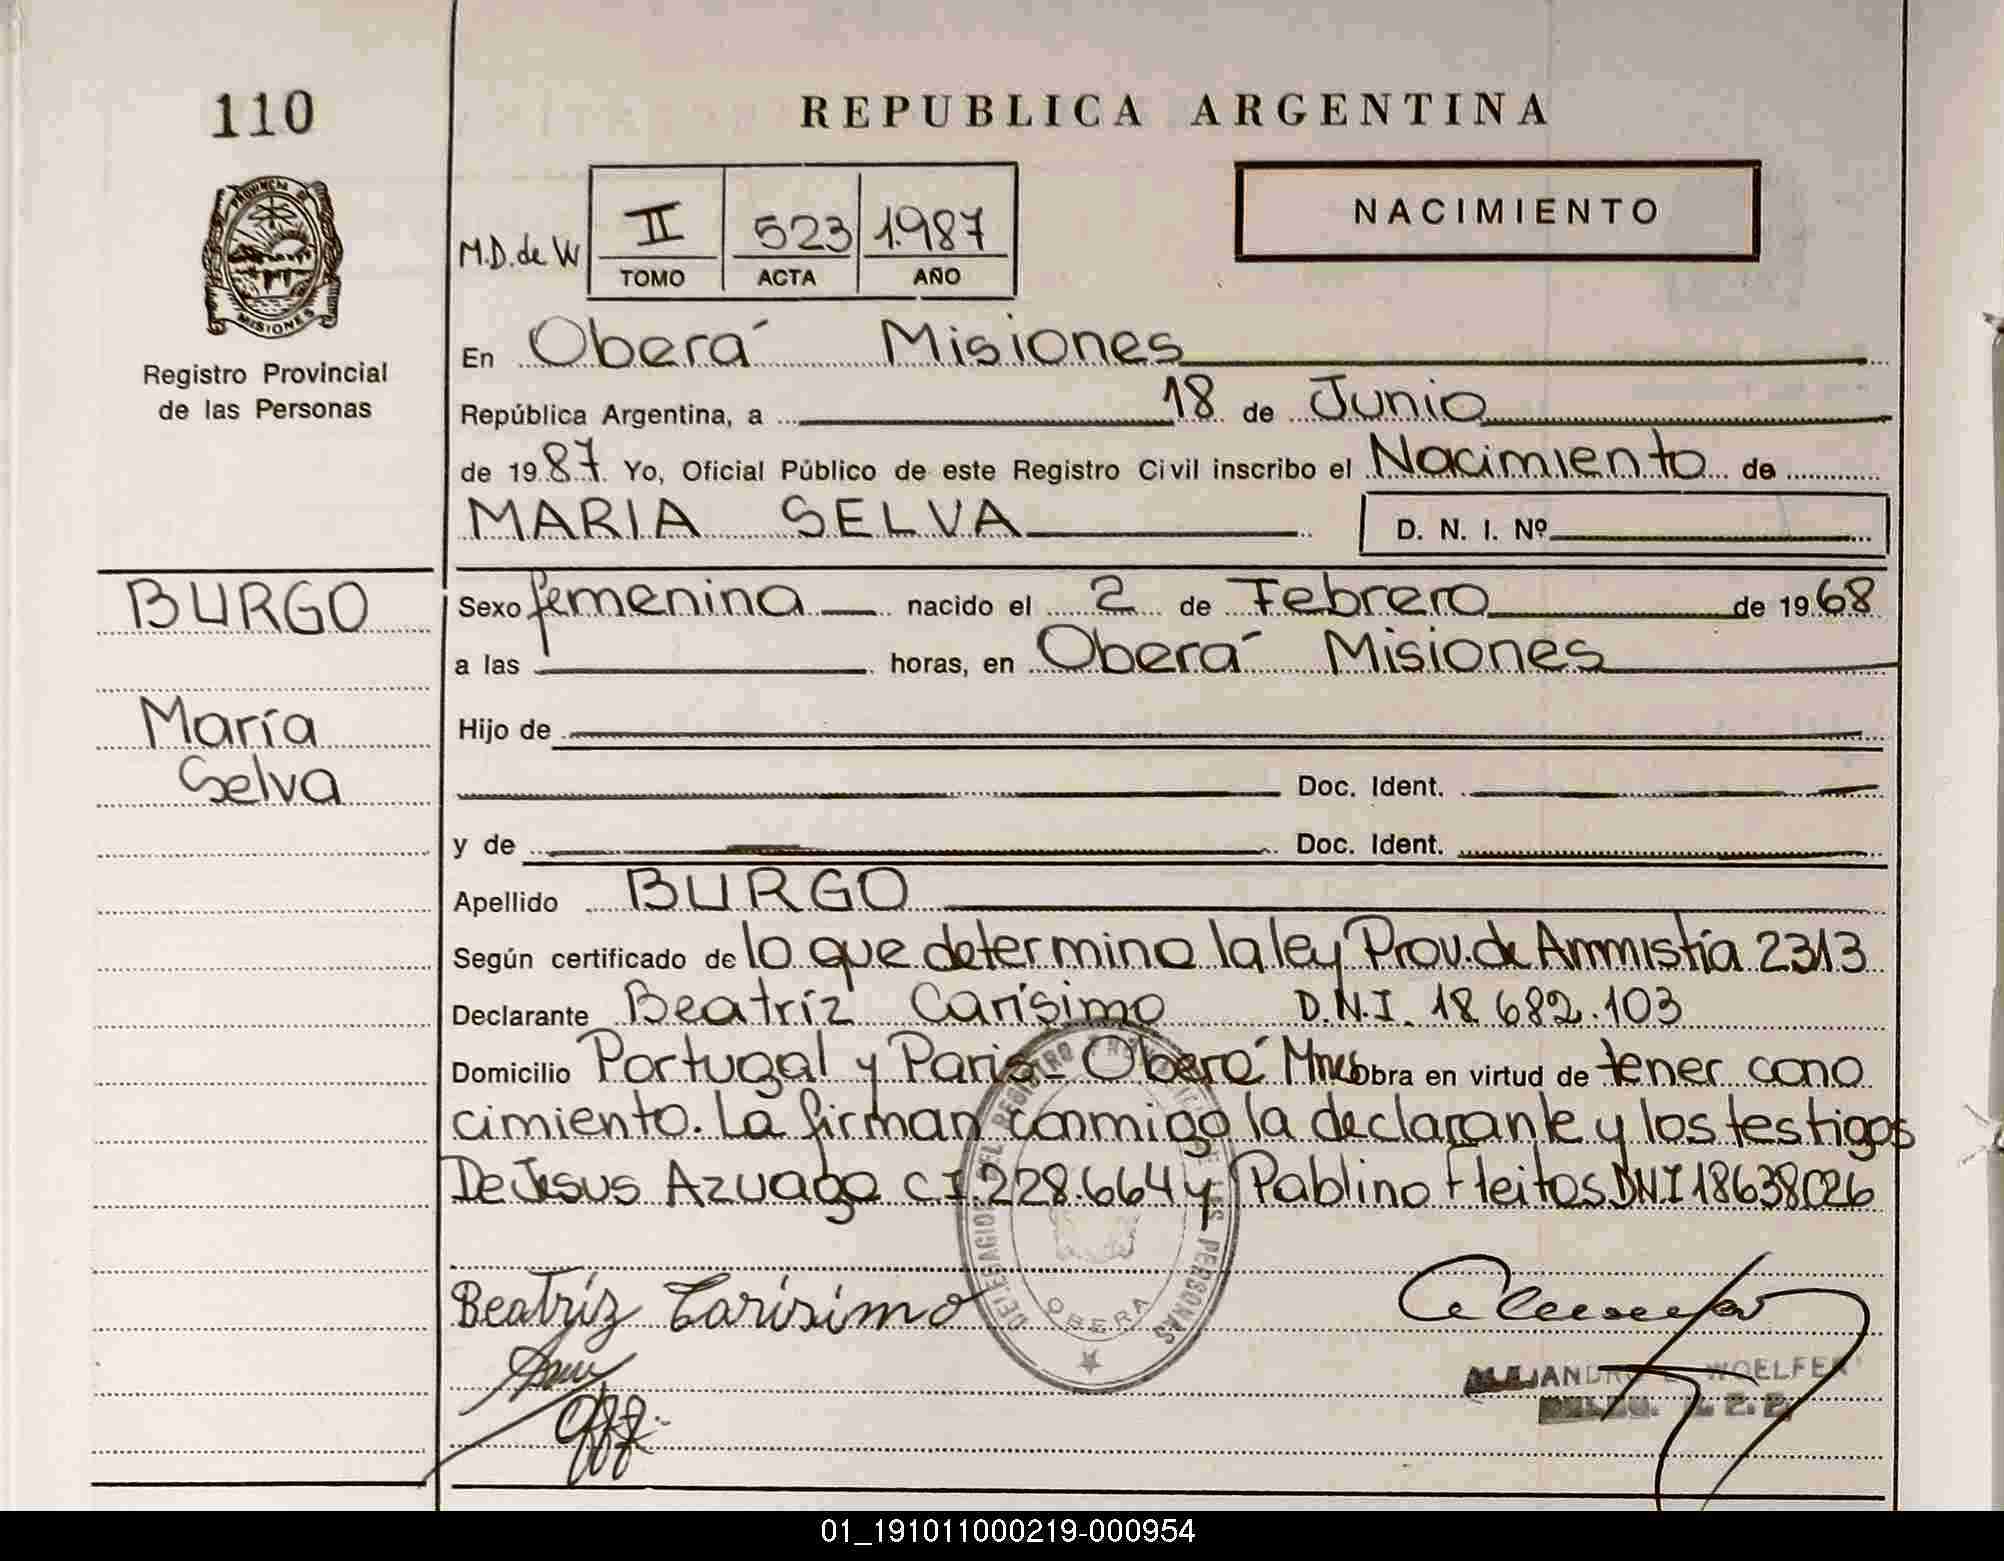 110
REPUBLICA ARGENTINA
PROVINCIA D
MISIONES
Registro Provincial
de las Personas
M.D. de W
II 523 1.987
TOMO ACTA AÑO
NACIMIENTO
En Oberá Misiones
República Argentina, a 18 de Junio
de 1987. Yo, Oficial Público de este Registro Civil inscribo el Nacimiento de
MARIA SELVA D. N. I. Nº
BURGO
María
Selva
Sexo femenina nacido el 2 de Febrero de 1968
a las horas, en Oberá Misiones
Hijo de
Doc. Ident.
y de Doc. Ident.
Apellido BURGO
Según certificado de lo que determina la ley Prov. de Ammistía 2313
Declarante Beatríz Carísimo D.N.I. 18 682.103
Domicilio Portugal y Paris - Oberá Mnes obra en virtud de tener cono
cimiento. La firman conmigo la declarante y los testigos
De Jesus Azuaga C.I. 228.664 y Pablino Fleitas D.N.I 18638026
DELEGACION DEL REGISTRO PROVINCIAL DE LAS PERSONAS
OBERA
Beatríz Carísimo
ALEJANDRO WOELFER
01_191011000219-000954